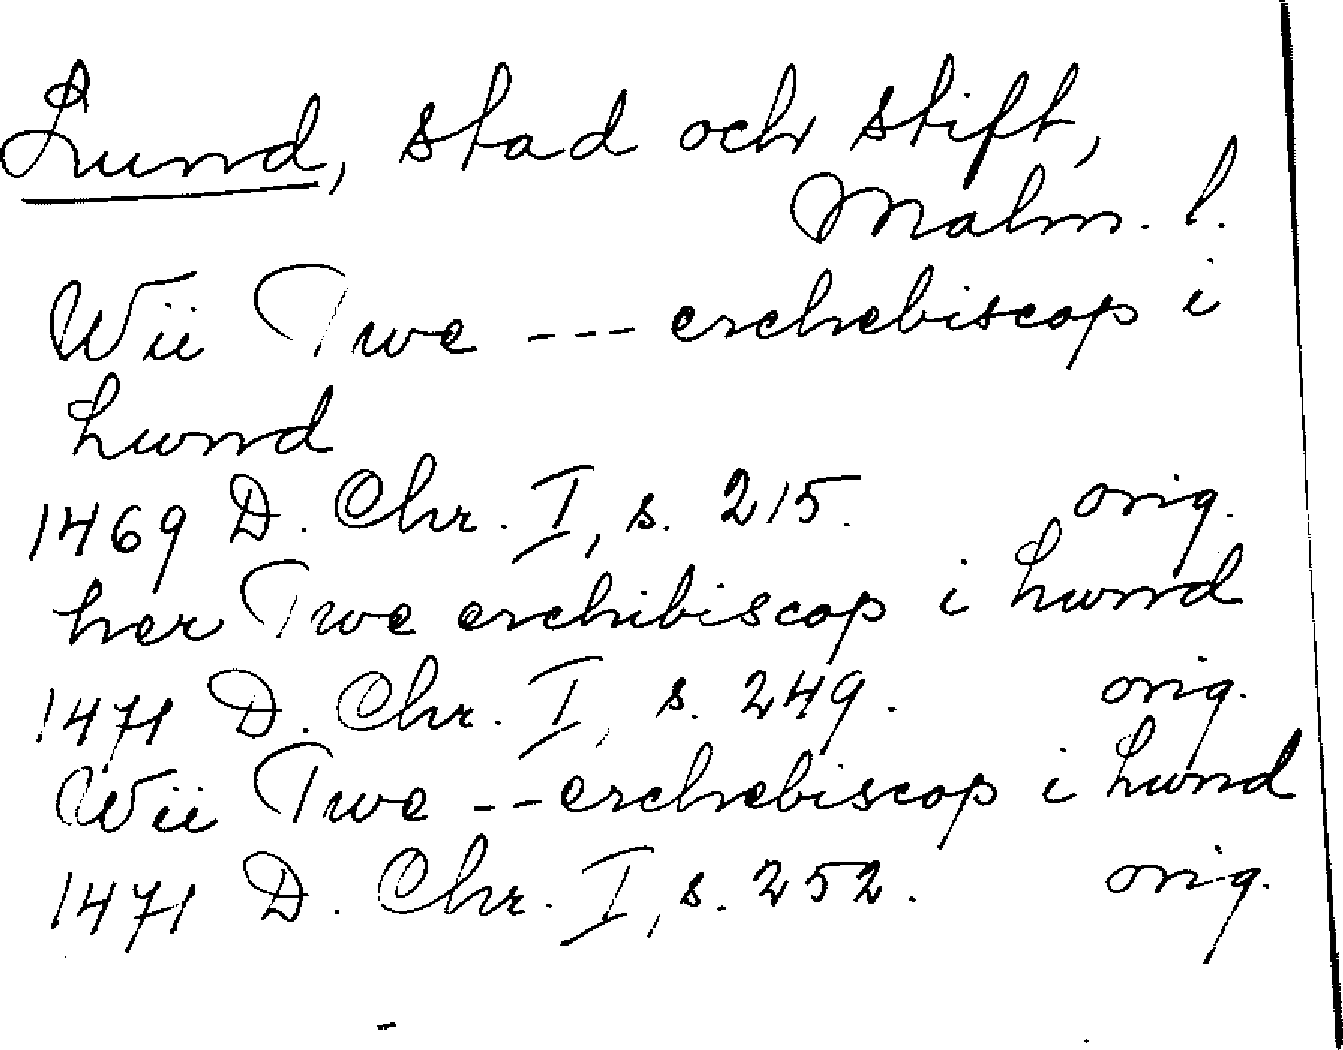 Lund, stad och stift,
Malm. l.
Wii Twe --- erchebiscop i
Lund
1469 D. Chr. I, s. 215. orig.
her Twe erchibiscop i Lund
1471 D. Chr. I, s. 249. orig.
Wii Twe -- erchebiscop i Lund
1471 D. Chr. I, s. 252. orig.